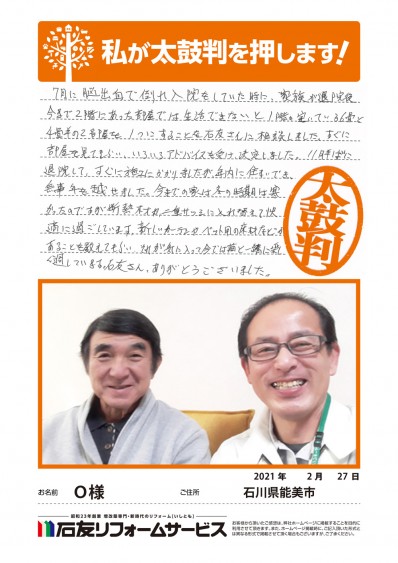 私が太鼓判を押します!
7月に脳出血で倒れ入院をしていた時に、家族が退院後
今まで2階にあった部屋では生活できないと、1階の空いている6畳と
4畳半の2部屋を、1つにすることを石友さんに相談しました。すぐに
部屋を見てもらい、いろいろアドバイスを受け、決定しました。11月半ばに
退院して、すぐに施工にかかりましたが年内に
年を越せました。今までの家は冬の時期は寒
かったのですが断熱材、二重サッシに入れ替えて快
適に過ごしています。新しいカーテンや、ペット用の床材など
あることを教えてもらい、気に入って今では一緒に
過しています。石友さん、ありがとうございました。
太鼓判
2021年 2月 27日
お名前 O様 ご住所 石川県能美市
石友リフォームサービス
お客様から頂いたご感想は、弊社ホームページに掲載することを目的に